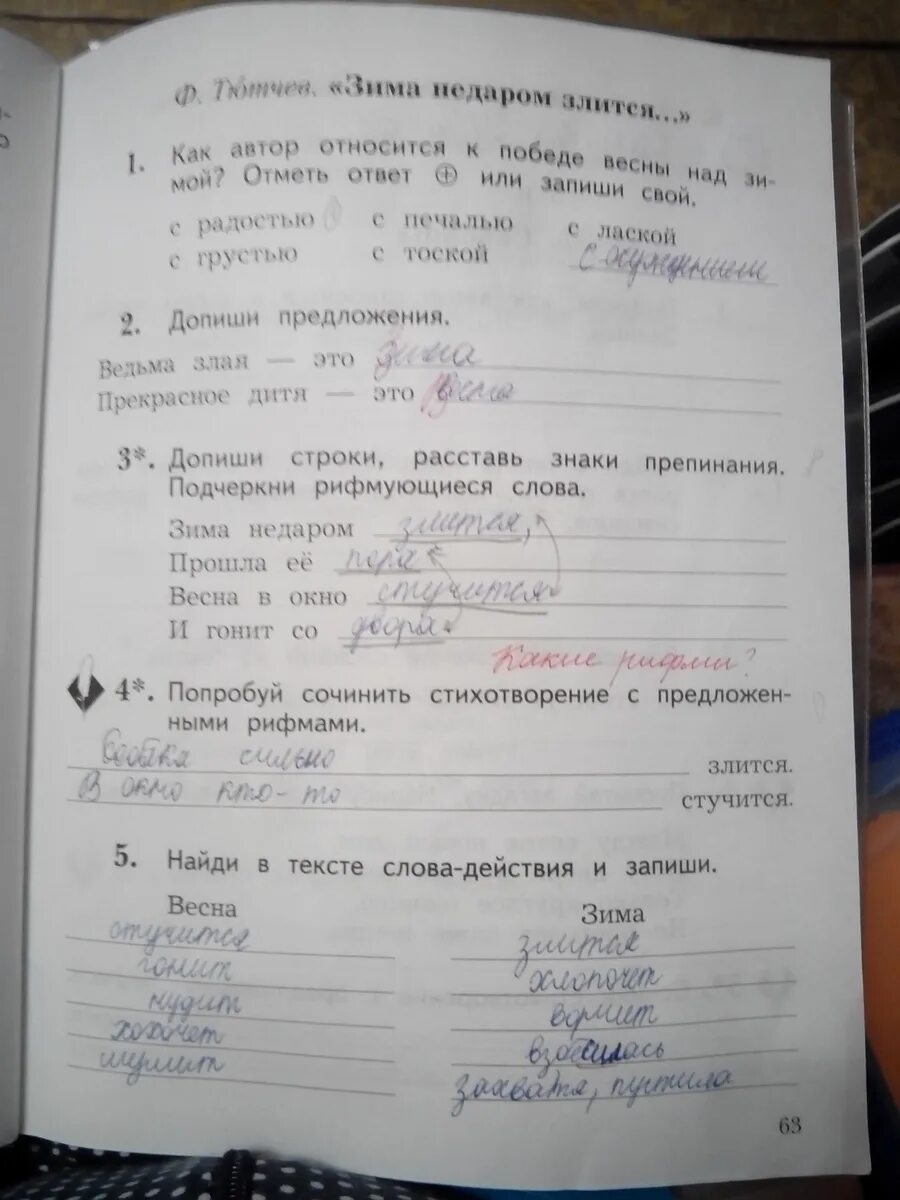 Ф. Тютчев. «Зима недаром злится...»
1. Как автор относится к победе весны над зи-
мой? Отметь ответ ⊕ или запиши свой.
с радостью с печалью с лаской
с грустью с тоской с осуждением
2. Допиши предложения.
Ведьма злая — это зима
Прекрасное дитя — это весна
3*. Допиши строки, расставь знаки препинания.
Подчеркни рифмующиеся слова.
Зима недаром злится,
Прошла её пора
Весна в окно стучится
И гонит со двора.
Какие рифмы?
4*. Попробуй сочинить стихотворение с предложен-
ными рифмами.
Собака сильно злится.
В окно кто-то стучится.
5. Найди в тексте слова-действия и запиши.
Весна Зима
стучится злится
гонит хлопочет
нудит ворчит
хохочет взбесилась
шумит захватя, пустила
63